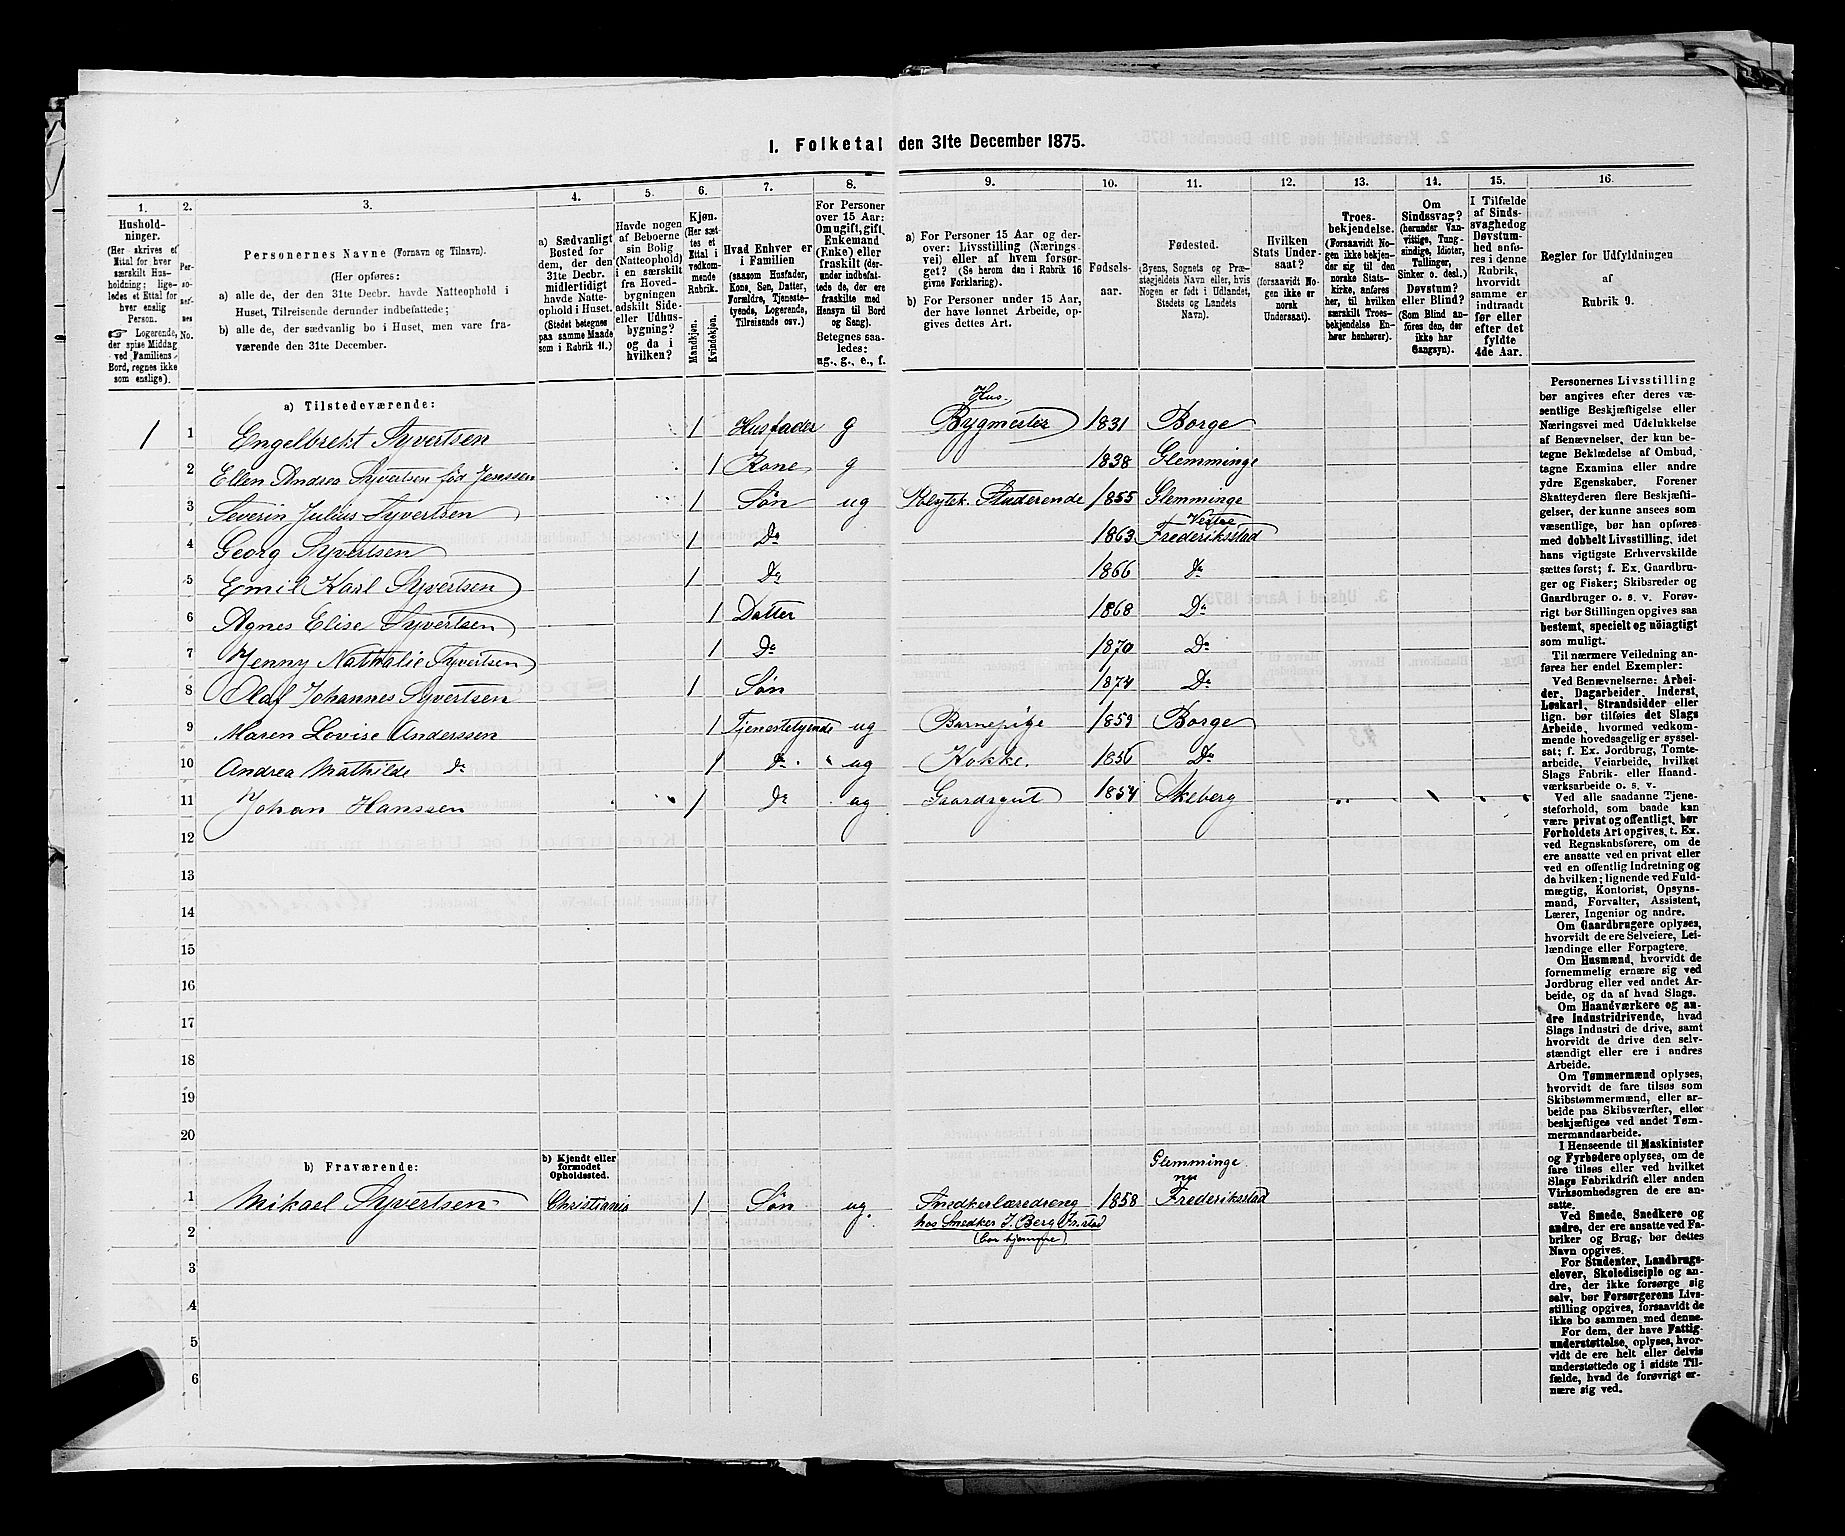 I. Folketal den 31te December 1875.
1.
2.
3.
4.
5.
6.
7.
8.
9.
10.
11.
12.
13.
14.
15.
16.
Hushold-
ninger.
(Her skrives et
Ettal for hver
særskilt Hus-
holdning; lige-
ledes et Ettal for
hver enslig
Person.
☞ Logerende,
der spise Middag
ved Familiens
Bord, regnes ikke
som enslige).
Per-
so-
ner-
nes
No.
Personernes Navne (Fornavn og Tilnavn).
(Her opføres:
a) alle de, der den 31te Decbr. havde Natteophold i
Huset, Tilreisende derunder indbefattede;
b) alle de, der sædvanlig bo i Huset, men vare fra-
værende den 31te December.
a) Sædvanligt
Bosted for
dem, der den
31te Decbr.
midlertidigt
havde Natte-
ophold i Huset.
(Stedet betegnes
paa samme Maade
som i Rubrik 11.)
Havde nogen
af Beboerne
sin Bolig
(Natteophold)
i en særskilt
fra Hoved-
bygningen
adskilt Side-
eller Udhus-
bygning?
og da i
hvilken?
Kjøn.
(Her sæt-
tes et
Ettal i
vedkom-
mende
Rubrik.
Mandkjøn.
Kvindekjøn.
Hvad Enhver er
i Familien
(saasom Husfader,
Kone, Søn, Datter,
Forældre, Tjeneste-
tyende, Logerende,
Tilreisende osv.)
For Personer
over 15 Aar:
Om ugift, gift,
Enkemand
(Enke) eller
fraskilt (der-
under indbefat-
tede de, der ere
fraskilte med
Hensyn til Bord
og Seng).
Betegnes saa-
ledes:
ug., g., e., f.
a) For Personer 15 Aar og der-
over: Livsstilling (Nærings-
vei) eller af hvem forsør-
get? (Se herom den i Rubrik 16
givne Forklaring).
b) For Personer under 15 Aar,
der have lønnet Arbeide, op-
gives dettes Art.
Fødsels-
aar.
Fødested.
(Byens, Sognets og Præ-
stegjeldets Navn eller, hvis
Nogen er født i Udlandet,
Stedets og Landets
Navn).
Hvilken
Stats Under-
saat?
(forsaavidt No-
gen ikke er
norsk
Undersaat).
Troes-
bekjendelse.
(Forsaavidt No-
gen ikke bekjen-
der sig til den
norske Stats-
kirke, anføres
her, til hvilken
særskilt Troes-
bekjendelse En-
hver henhører).
Om
Sindssvag?
(herunder Van-
vittige, Tung-
sindige, Idioter,
Tullinger,
Sinker o. desl.)
Døvstum?
eller Blind?
(Som Blind an-
føres den, der
ikke har
Gangsyn).
I Tilfælde
af Sinds-
svaghed og
Døvstum-
hed anfø-
res i denne
Rubrik,
hvorvidt
samme er
indtraadt
før eller
efter det
fyldte
4de Aar.
Regler for Udfyldningen
af
Rubrik 9.
a) Tilstedeværende:
1 1 Engelbrekt Syvertsen 1 Husfader g Hus-Bygmester 1831 Borge
2 Ellen Andrea Syvertsen fød Jenssen 1 Kone g 1838 Glemminge
3 Severin Julius Syvertsen 1 Søn ug Polytek. Studerende 1855 Glemminge
4 Georg Syvertsen 1 Do 1863 Vestre Frederiksstad
5 Emil Karl Syvertsen 1 Do 1866 Do
6 Agnes Elise Syvertsen 1 Datter 1868 Do
7 Jenny Nathalie Syvertsen 1 Do 1870 Do
8 Olaf Johannes Syvertsen 1 Søn 1874 Do
9 Maren Lovise Anderssen 1 Tjenestetyende ug Barnepige 1859 Borge
10 Andrea Mathilde Do 1 do ug Kokke. 1856 Do
11 Johan Hanssen 1 do ug Gaardsgut 1854 Skeberg
12
13
14
15
16
17
18
19
20
b) Fraværende:
b) Kjendt eller
formodet
Opholdssted.
1 Mikael Syvertsen Christiania 1 Søn ug. Snedkerlæredreng 1858 Glemminge Frederiksstad
hos Snedker J. Berg
2
3
4
5
6
Personernes Livsstilling
bør angives efter deres væ-
sentlige Beskjæftigelse eller
Næringsvei med Udelukkelse
af Benævnelser, der kun be-
tegne Beklædelse af Ombud,
tagne Examina eller andre
ydre Egenskaber. Forener
Skatteyderen flere Beskjæfti-
gelser, der kunne ansees som
væsentlige, bør han opføres
med dobbelt Livsstilling, idet
hans vigtigste Erhvervskilde
sættes først; f. Ex. Gaardbru-
ger og Fisker; Skibsreder og
Gaardbruger o. s. v. Forøv-
rigt bør Stillingen opgives saa
bestemt, specielt og nøiagtigt
som muligt.
Til nærmere Veiledning an-
føres her endel Exempler:
Ved Benævnelserne: Arbei-
der, Dagarbeider, Inderst,
Løskarl, Strandsidder eller
lign. bør tilføies det Slags
Arbeide, hvormed vedkom-
mende hovedsagelig er syssel-
sat; f. Ex. Jordbrug, Tomte-
arbeide, Veiarbeide, hvilket
Slags Fabrik- eller Haand-
værksarbeide o. s. v.
Ved alle saadanne Tjene-
steforhold, som baade kan
være privat og offentligt, bør
Forholdets Art opgives, t. Ex.
ved Regnskabsførere, om de
ere ansatte ved en privat eller
ved en offentlig Indretning og
da hvilken; lignende ved Fuld-
mægtig, Kontorist, Opsyns-
mand, Forvalter, Assistent,
Lærer, Ingeniør og andre.
Om Gaardbrugere oplyses,
hvorvidt de ere Selveiere, Lei-
lændinge eller Forpagtere.
Om Husmænd, hvorvidt de
fornemmelig ernære sig ved
Jordbrug eller ved andet Ar-
beide, og da af hvad Slags.
Om Haandværkere og an-
dre Industridrivende, hvad
Slags Industri de drive, samt
hvorvidt de drive den selv-
stændigt eller ere i andres
Arbeide.
Om Tømmermænd oplyses,
hvorvidt de fare tilsøs som
Skibstømmermænd, eller ar-
beide paa Skibsværfter, eller
beskjæftiges ved andet Tøm-
mermandsarbeide.
I Henseende til Maskinister
og Fyrbødere oplyses, om de
fare tilsøs eller ved hvilket
Slags Fabrikdrift eller anden
Virksomhedsgren de ere an-
satte.
Ved Smede, Snedkere og
andre, der ere ansatte ved Fa-
briker og Brug, bør dettes
Navn opgives.
For Studenter, Landbrugs-
elever, Skoledisciple og an-
dre, der ikke forsørge sig
selv, bør Forsørgerens Livs-
stilling opgives, forsaavidt de
ikke bo sammen med denne.
For dem, der have Fattig-
understøttelse, oplyses, hvor-
vidt de ere helt eller delvis
understøttede og i sidste Til-
fælde, hvad de forøvrigt er-
nære sig ved.